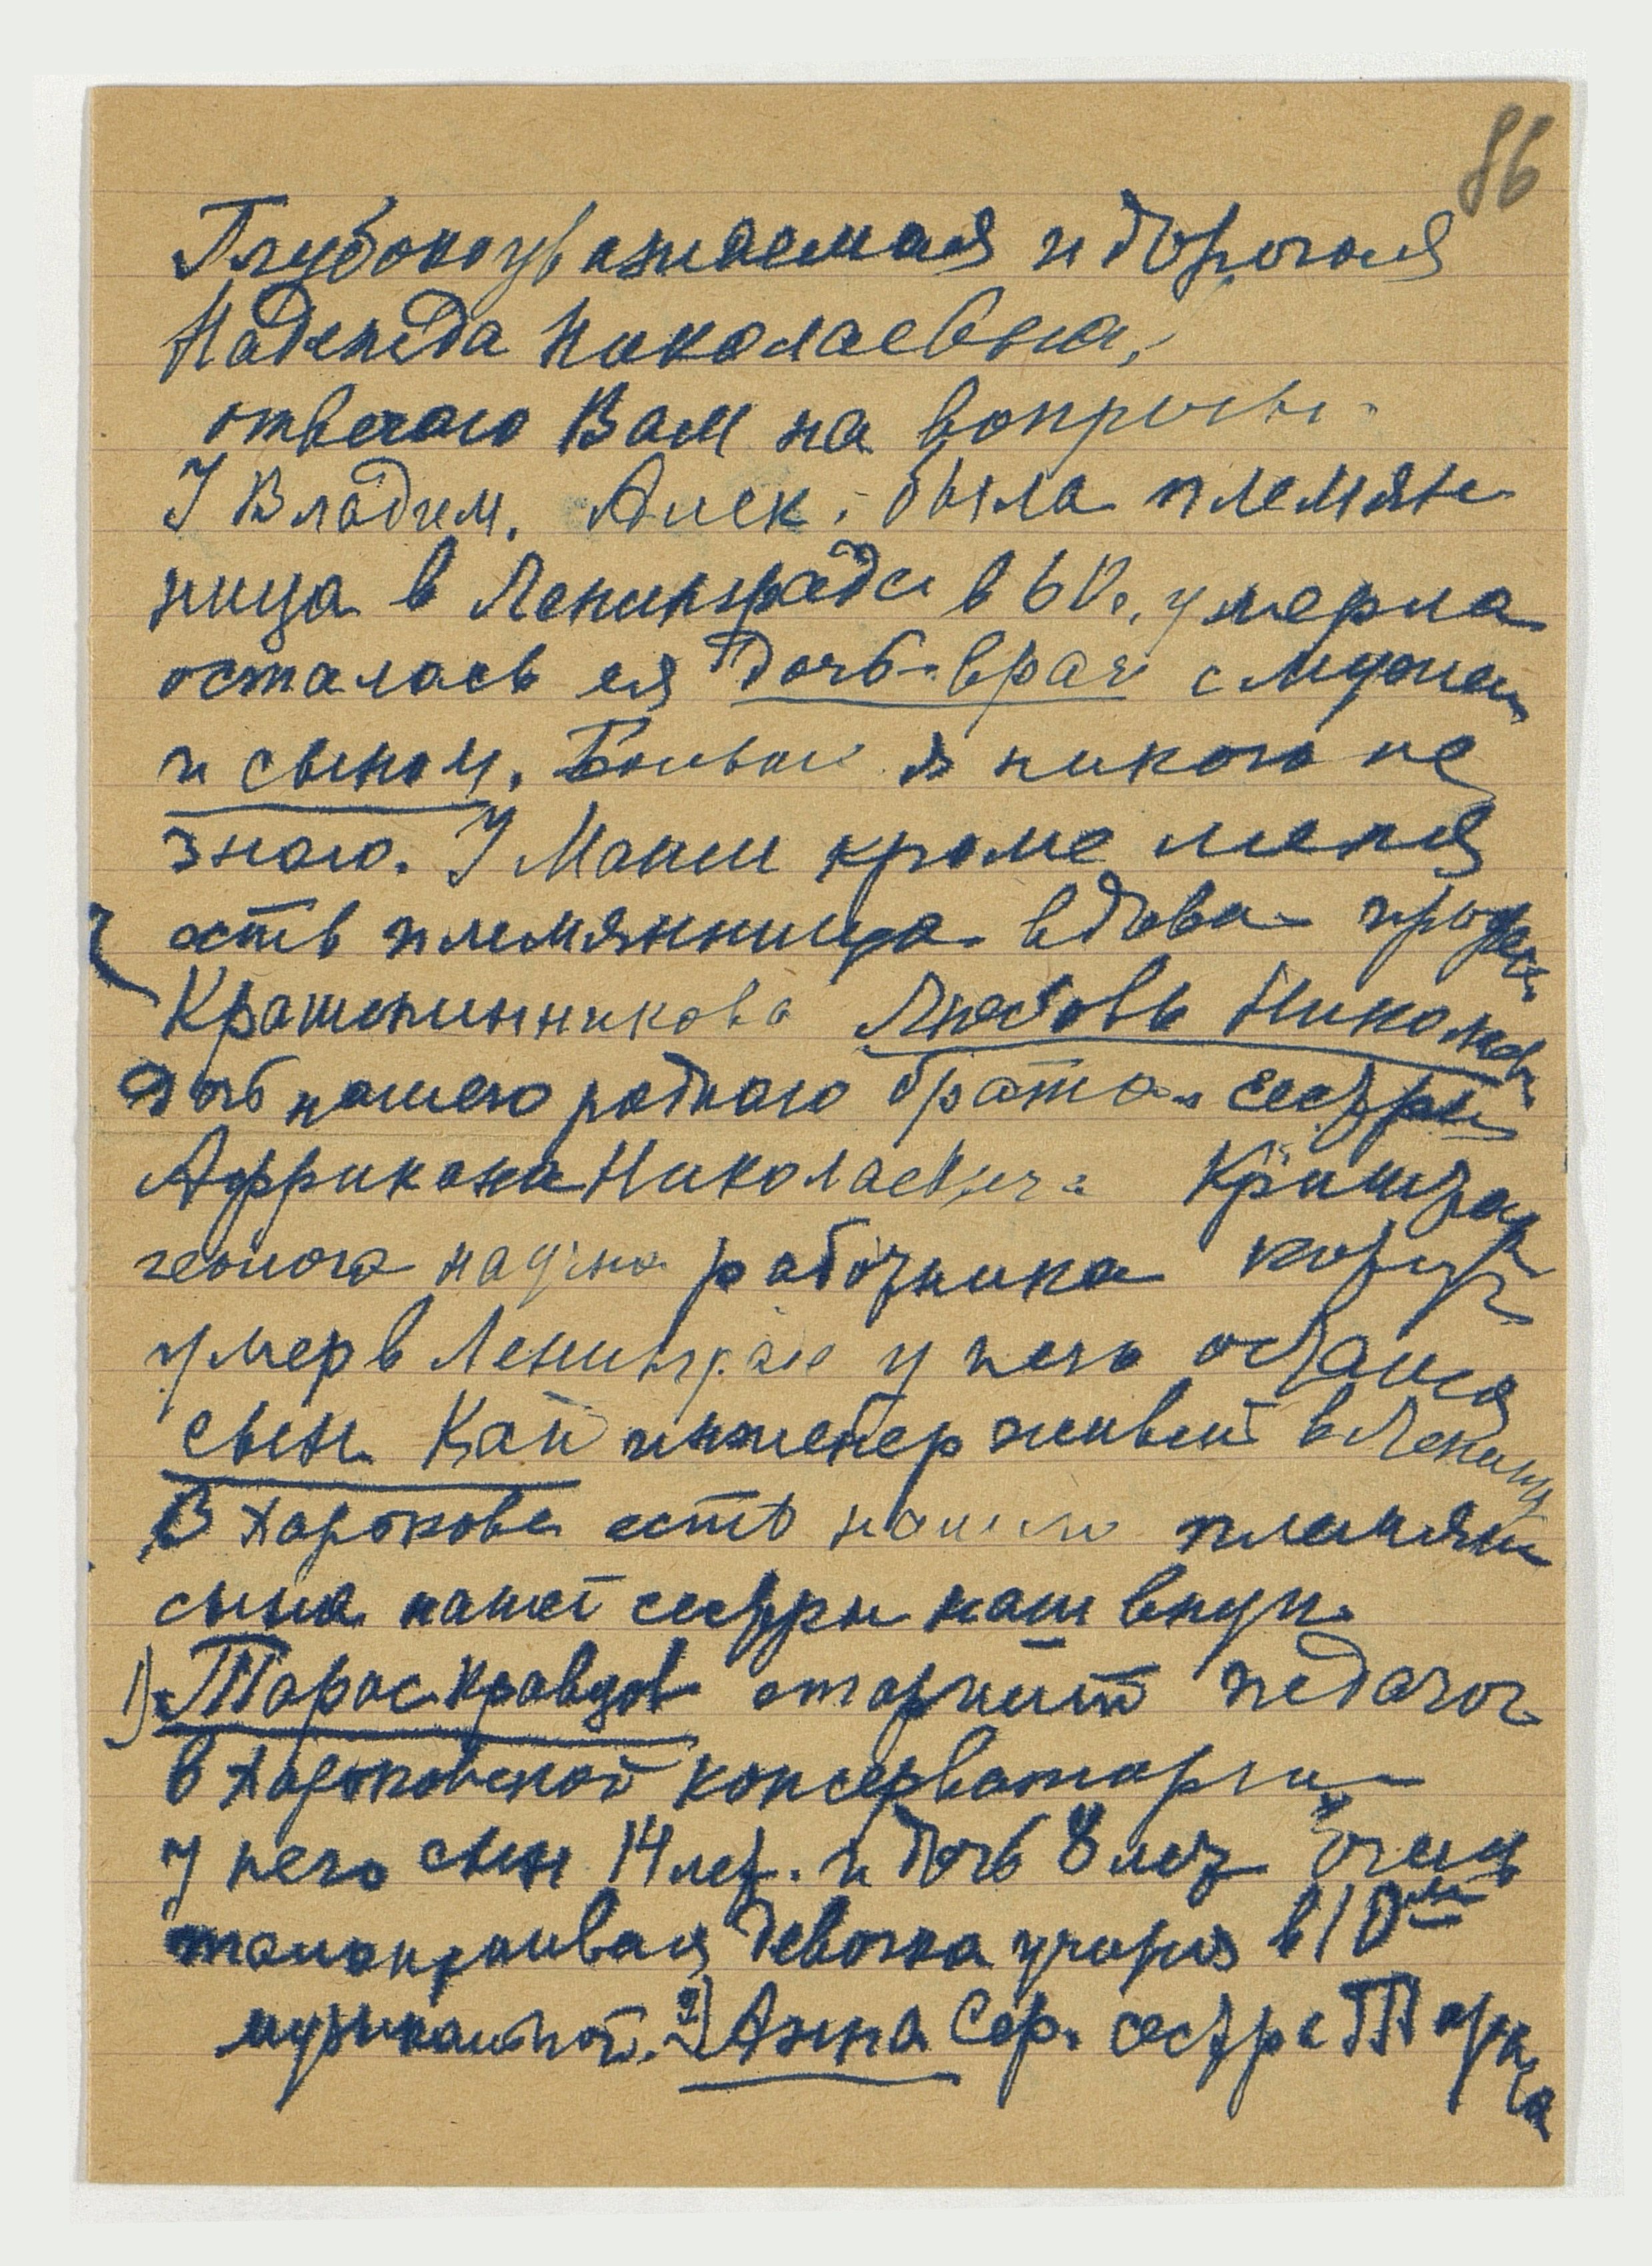 86
Глубокоуважаемая и дорогая
Надежда Николаевна,
отвечаю Вам на вопросы.
У Владим. Алек. была племян
ница в Ленинграде в 60. умерла
осталась ея дочь-врач с мужем
и сыном. Больше я никого не
знаю. У Мани кроме меня
есть племянница вдова профес.
Крашенинникова Любовь Никола
дочь нашего родного брата и сестры
Аффрикана Николаевича
научно работника
умер в Ленинграде у него остался
сын Кай инженер живет в Ленингр
В Харькове есть наши племян
сына нашей сестры наш внук
1) Тарас Кравцов старший педагог
в Харьковской консерватории
У него сын 14 лет. и дочь 8 лет очень
талантливая девочка учится в 10ой
музыкальной. 2) Анна Сер. сестра Тараса